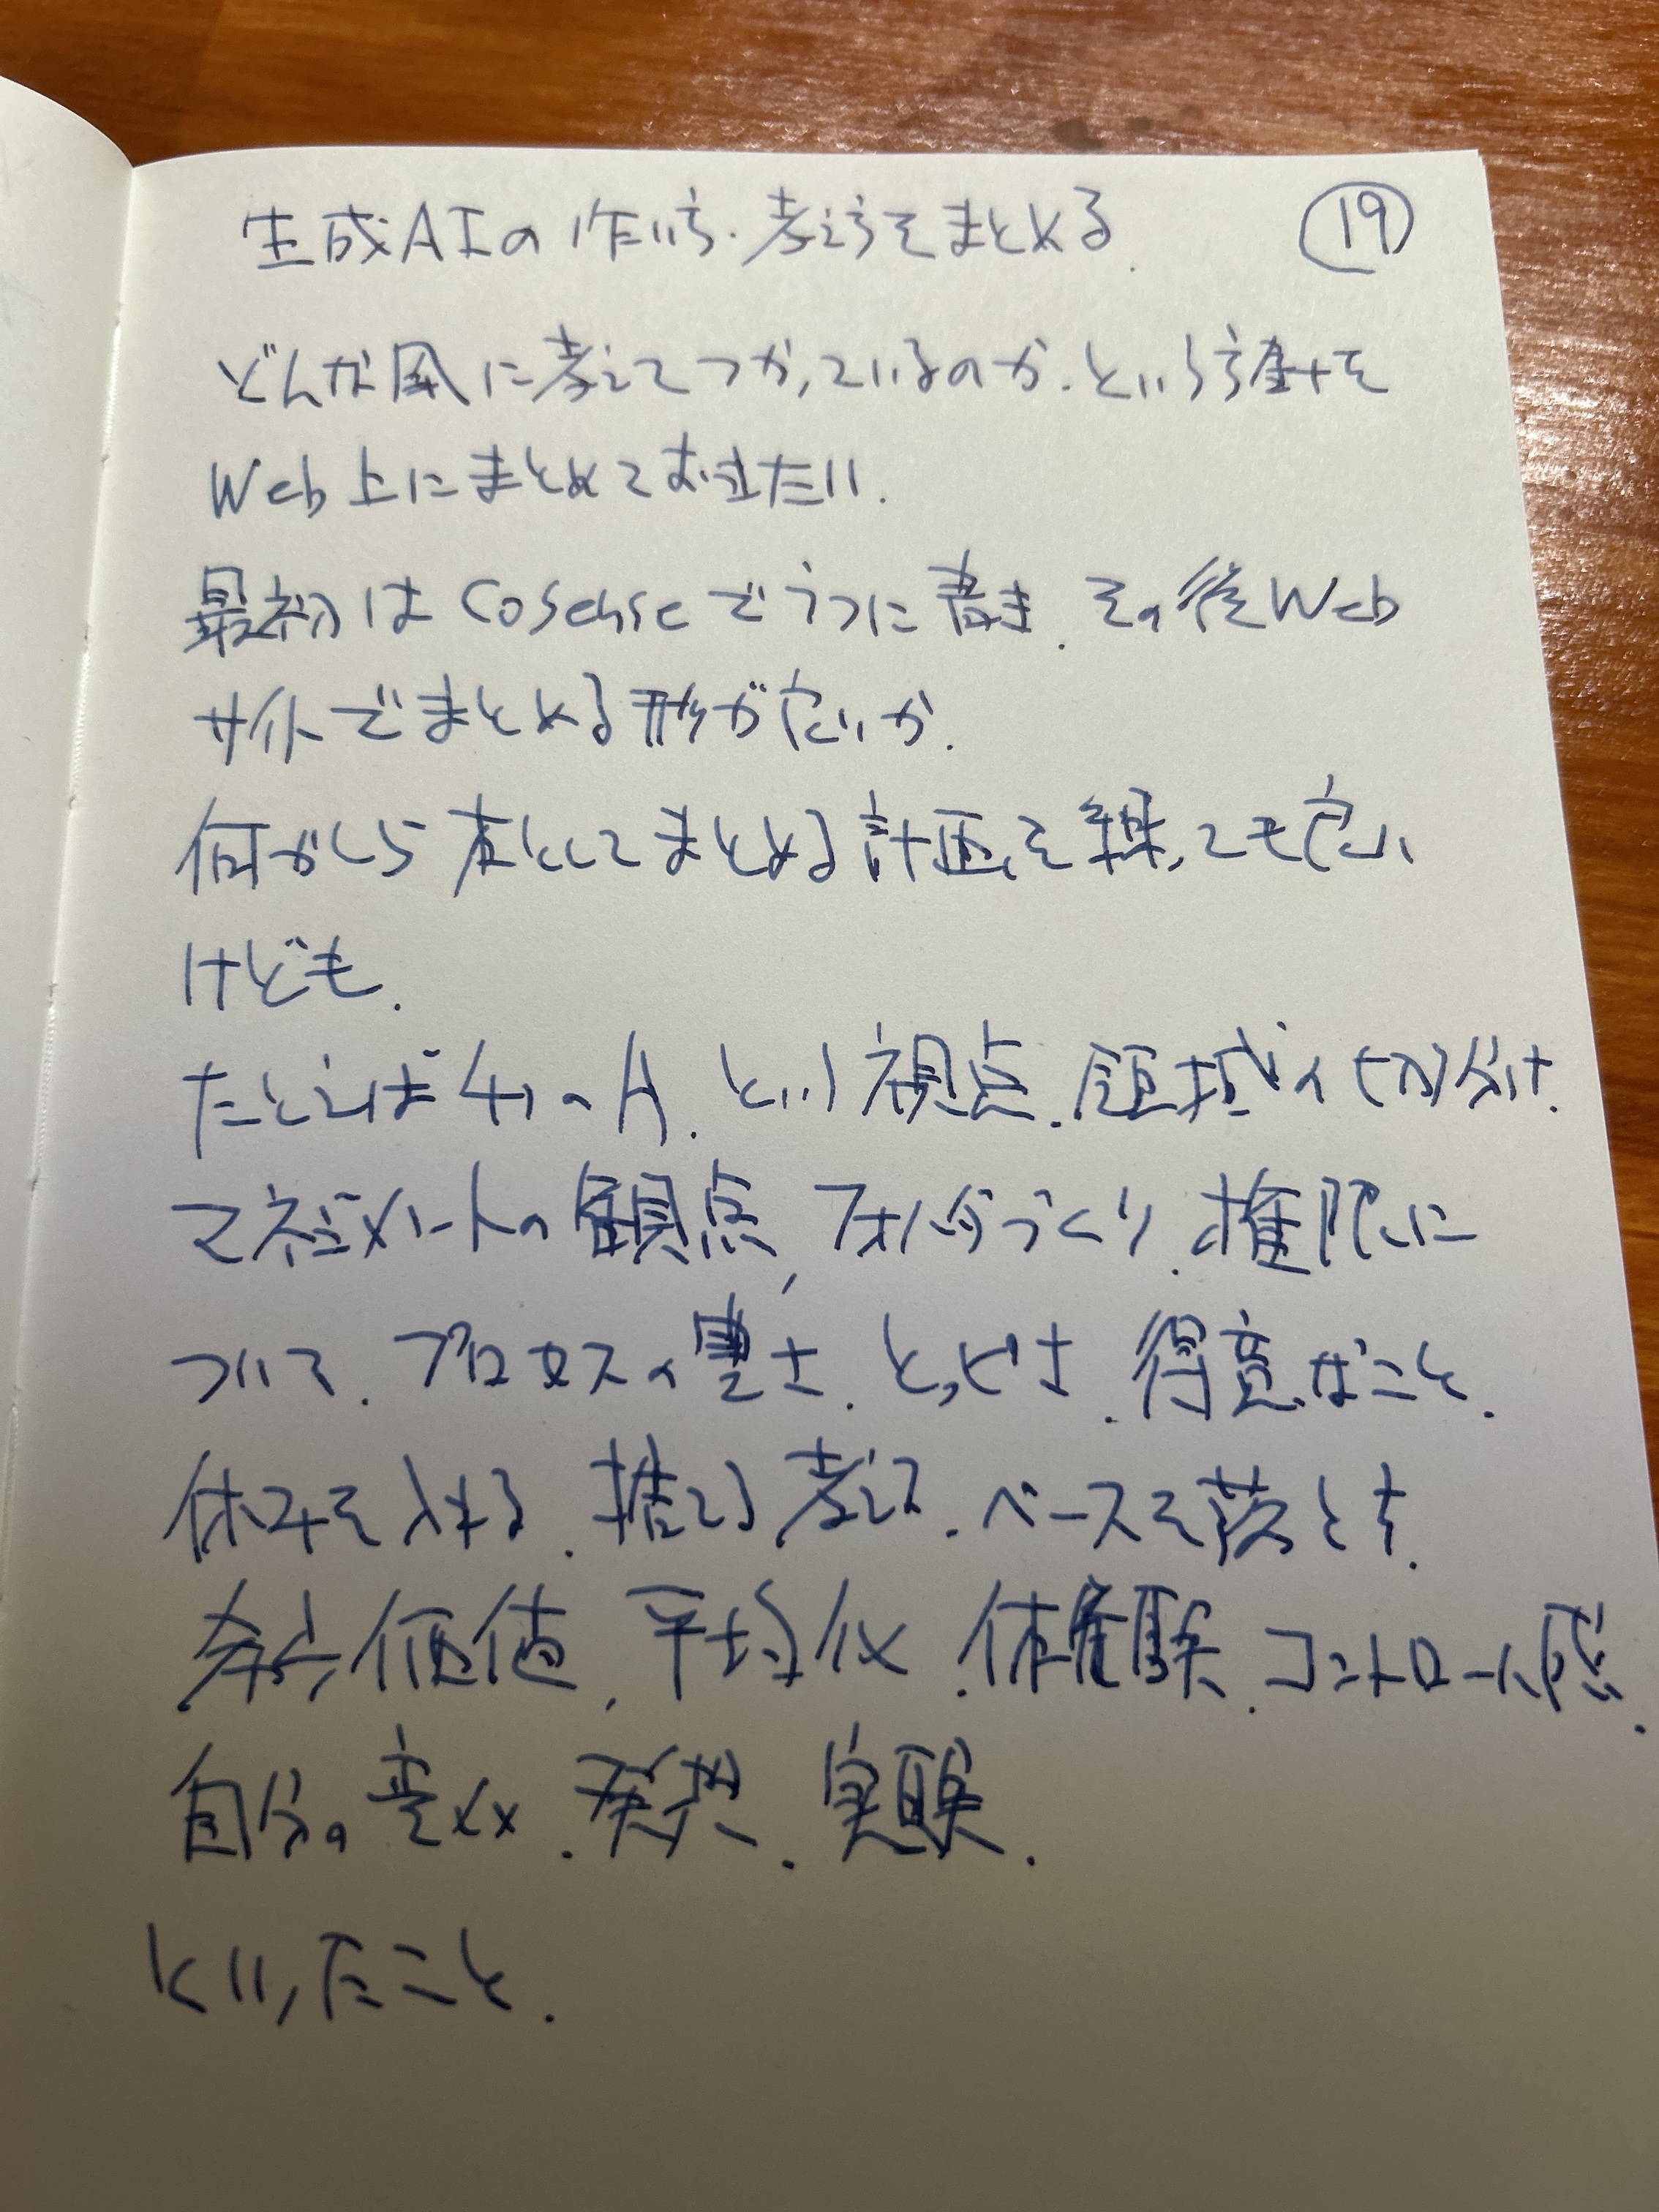 生成AIの使い方・考え方をまとめる. ⑲
どんな風に考えてつかっているのか.という話を
Web上にまとめておきたい.
最初はCosenseでうつに書き.その後Web
サイトでまとめる形が良いか.
何かしら本としてまとめる計画を練っても良い
けども.
たとえば4つのA.という視点.領域の切り分け.
マネジメントの観点,フォルダづくり.権限に
ついて.プロセスの豊さ.とっぴさ.得意なこと.
休みを入れる.捨てる考え.ペースを落とす.
希少価値,平均化.体験.コントロール感.
自分の変化.発想.実験.
といったこと.